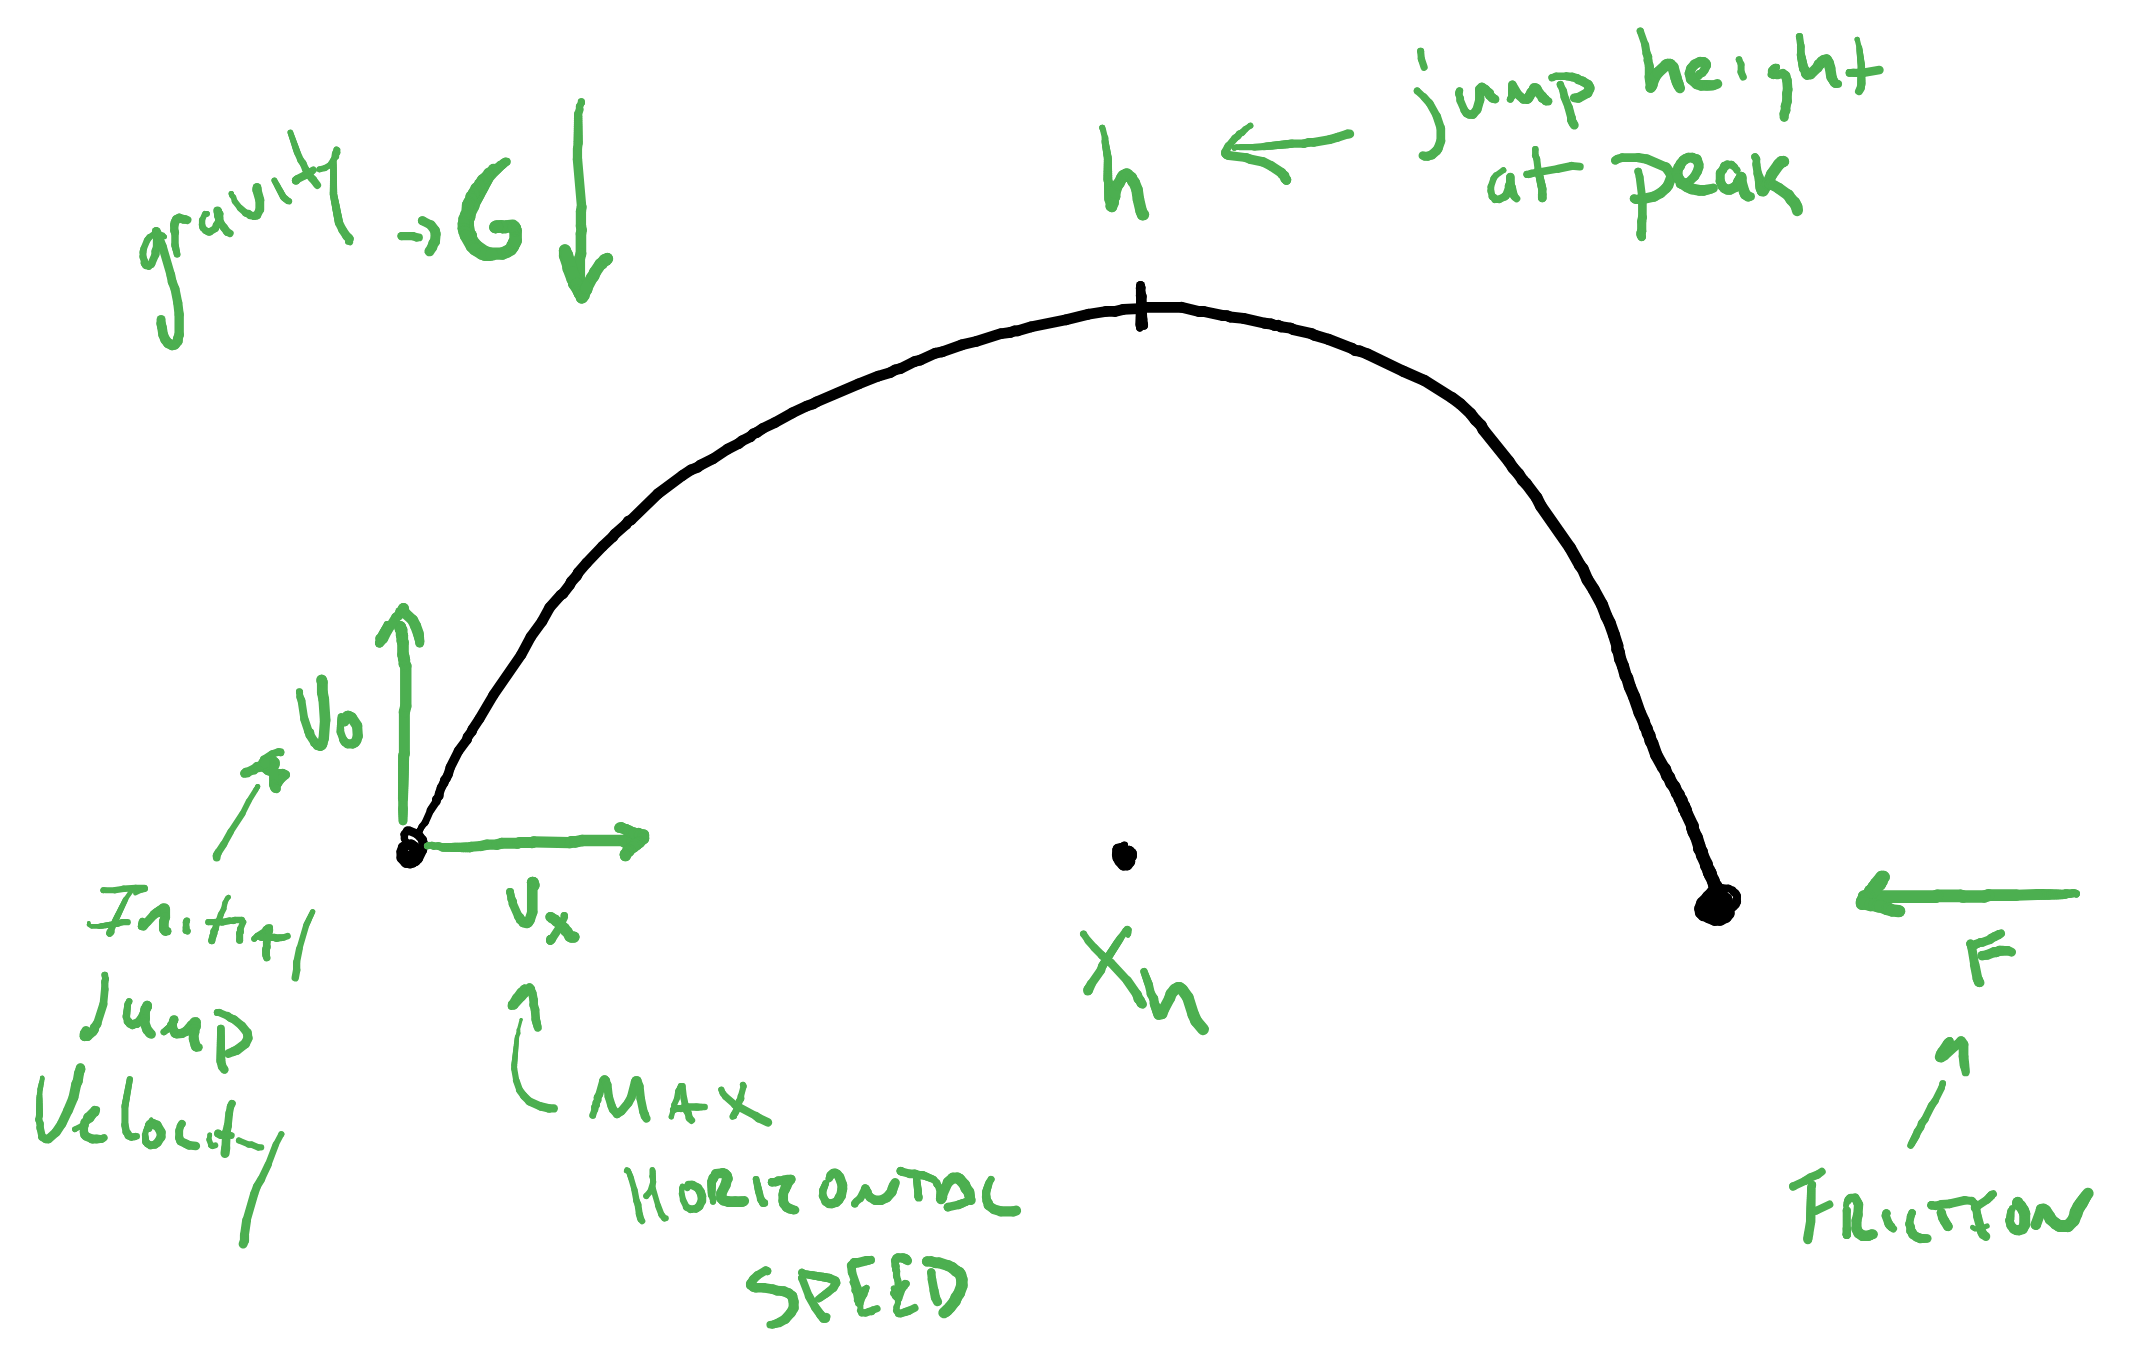 gravity → G
h ← jump height
at peak
V0
Vx
Initial
Jump
Velocity
Xh
MAX
HORIZONTAL
SPEED
F
FRICTION